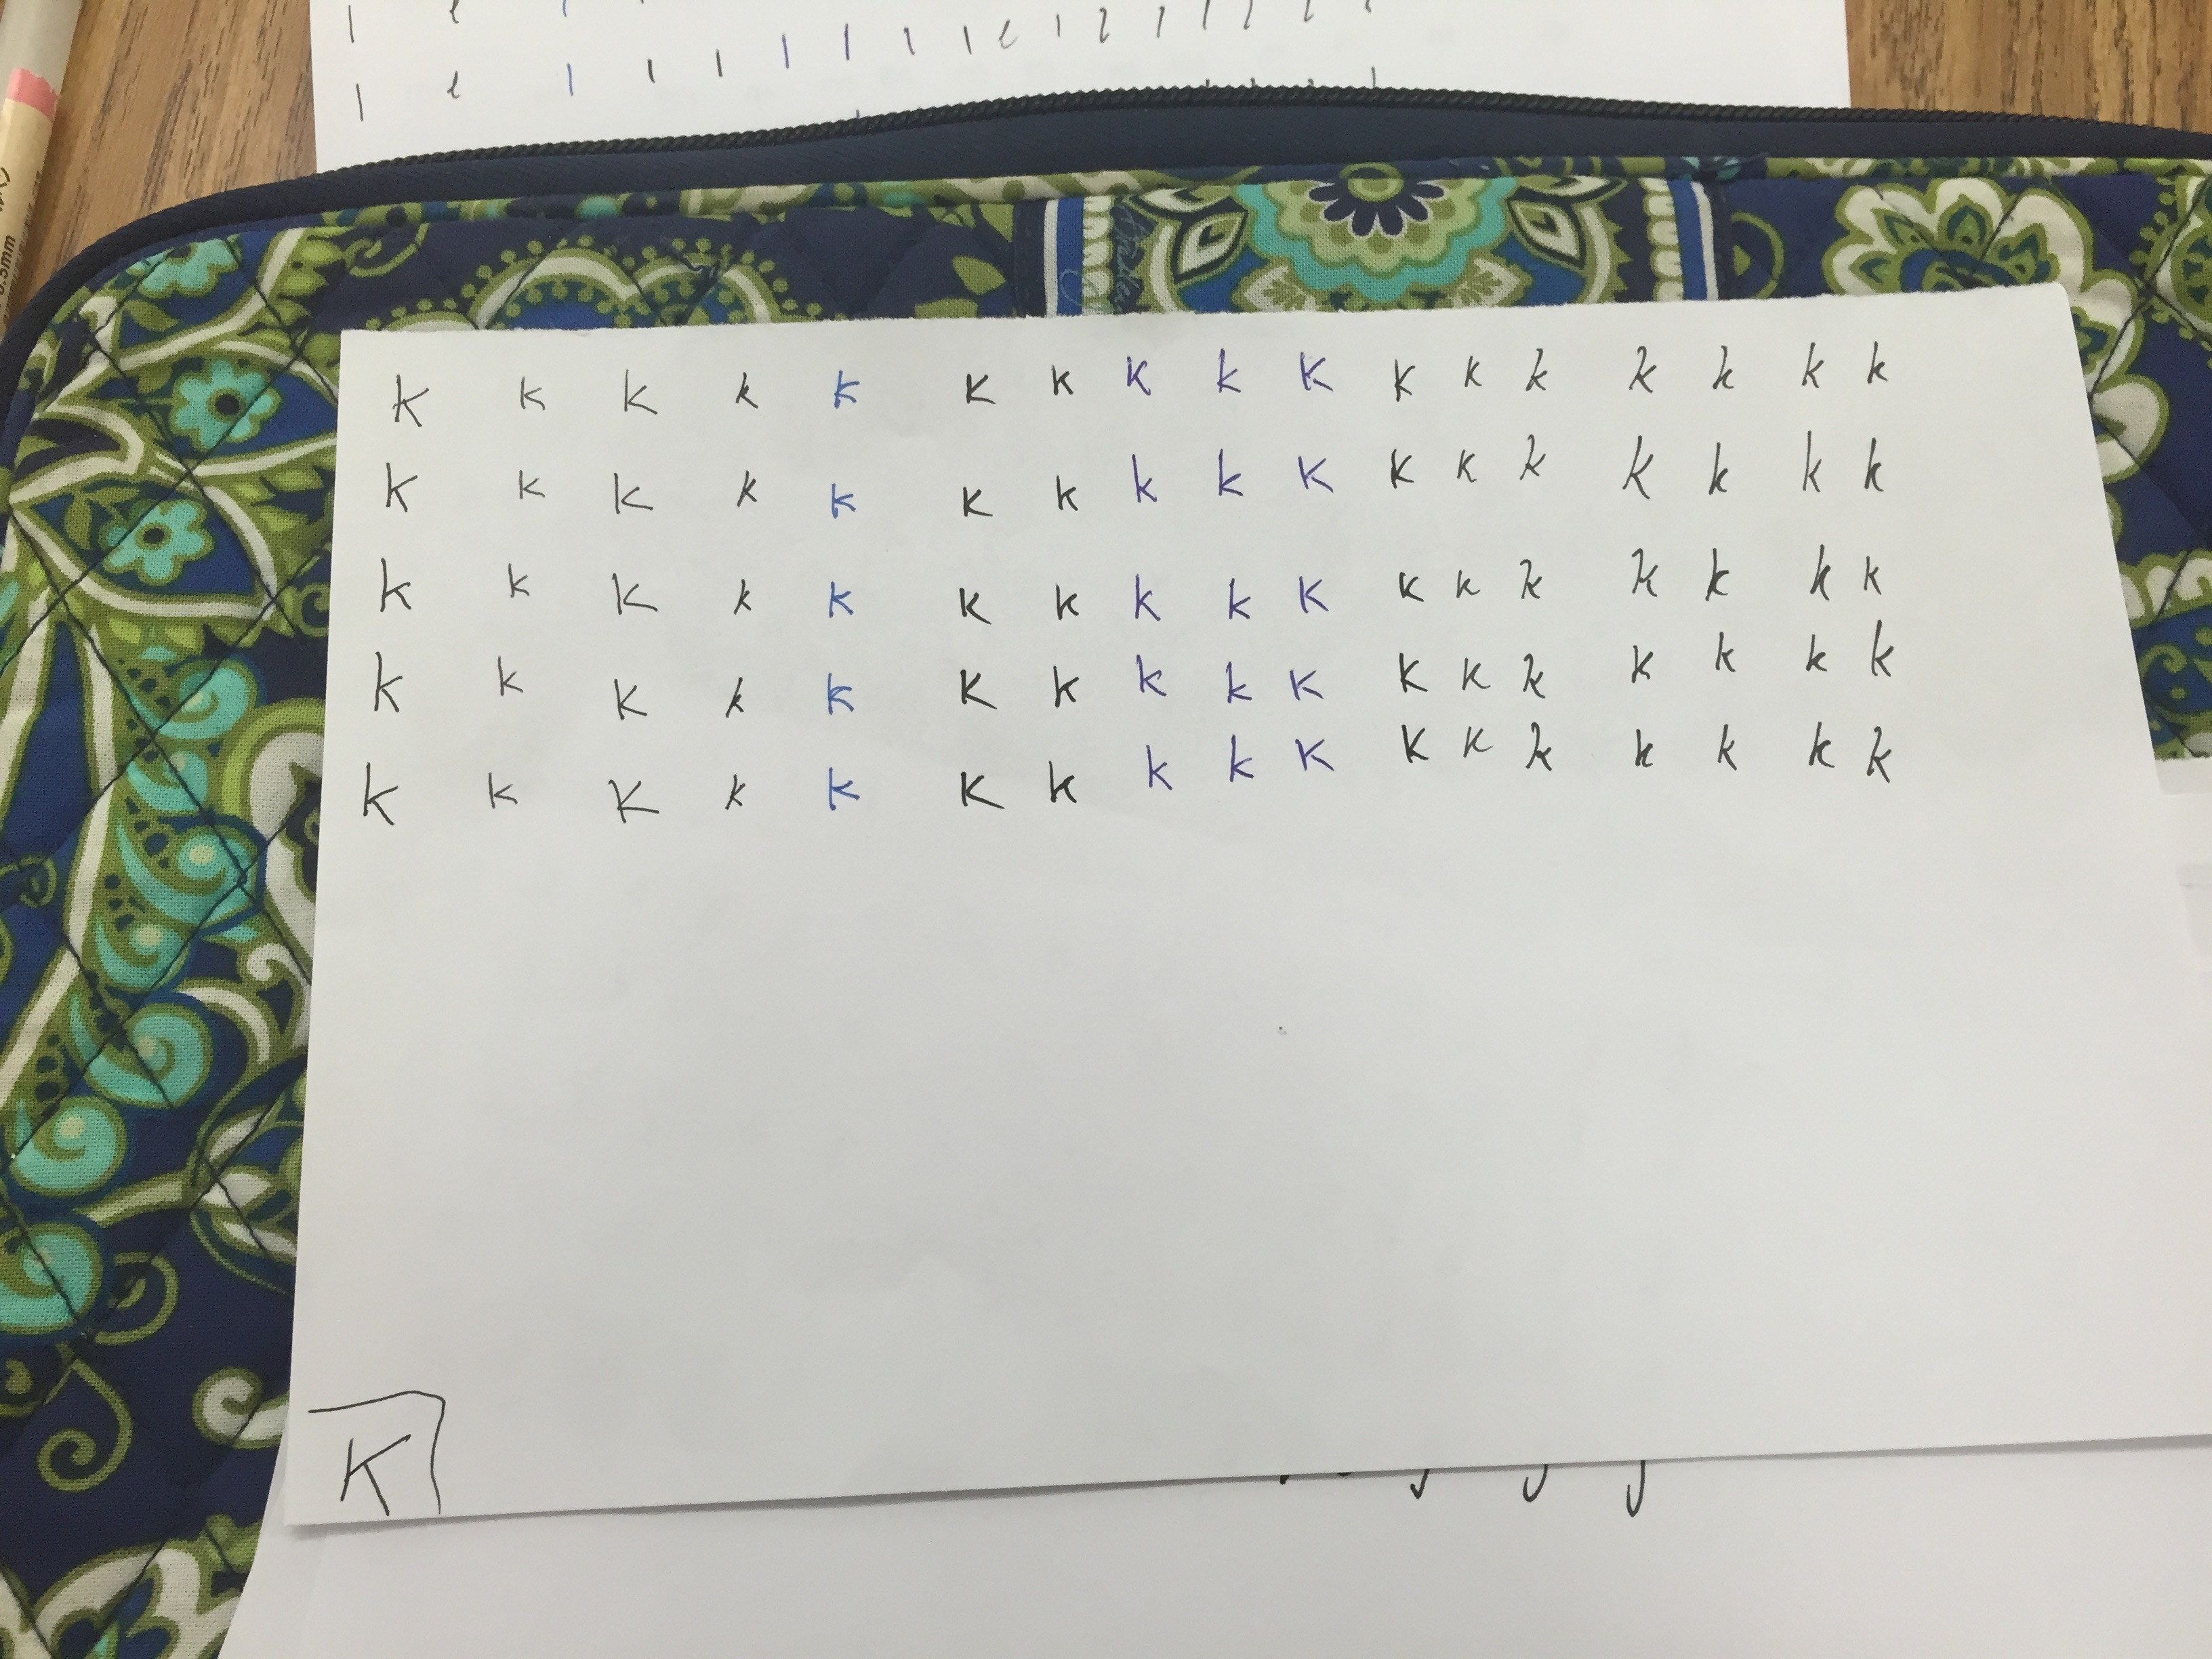 l l l l l l l l l l l l l l
k k k k k k k k k k k k k k k k k
k k k k k k k k k k k k k k k k k
k k k k k k k k k k k k k k k k k
k k k k k k k k k k k k k k k k k
k k k k k k k k k k k k k k k k k
K
0.5mm